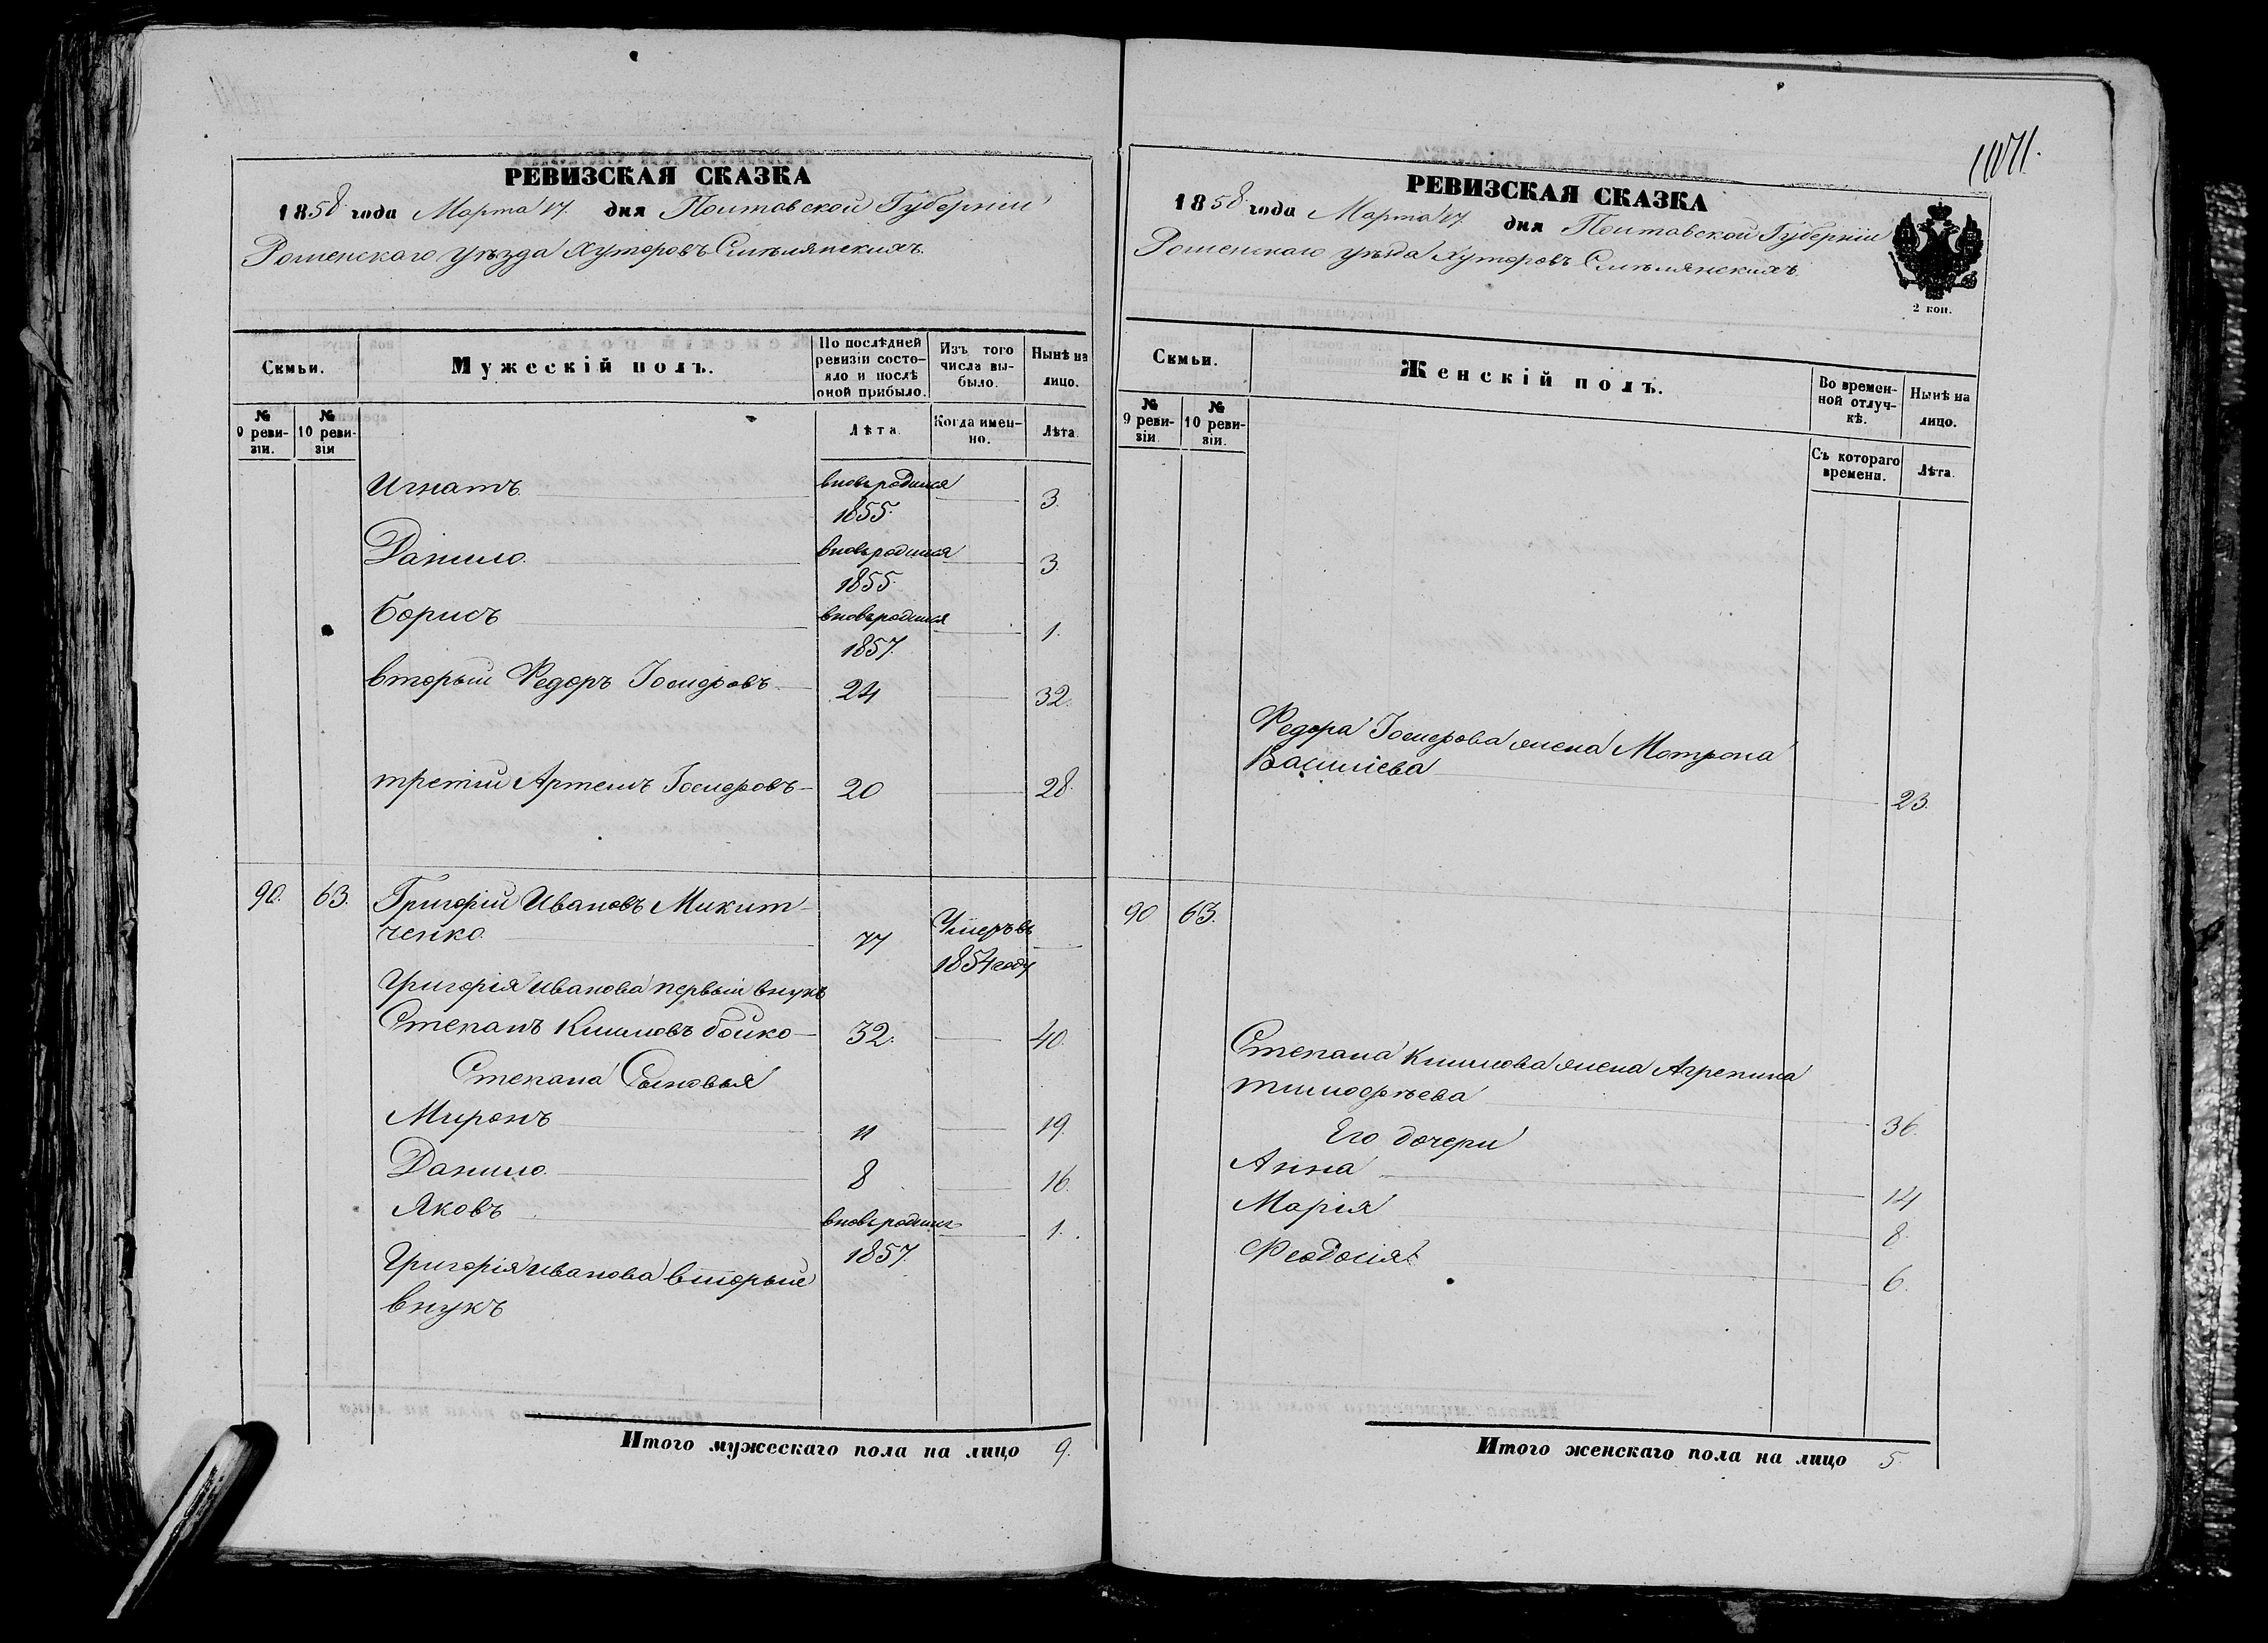 РЕВИЗСКАЯ СКАЗКА
1858 года Марта 17. дня Полтавской Губерніи
Роменскаго уѣзда Хуторовъ Смѣлянскихъ.
Семьи.
Мужескій полъ.
По послѣдней ревизіи состояло и послѣ оной прибыло.
Изъ того числа выбыло.
Нынѣ на лицо.
№ 9 ревизіи.
№ 10 ревизіи
Лѣта.
Когда именно.
Лѣта.
Игнатъ вновь родился 1855. 3.
Данило. вновь родился 1855. 3.
Борисъ вновь родился 1857. 1.
вторый Федоръ Іосифовъ 24 32.
третій Артемъ Іосифовъ 20 28.
90. 63. Григорій Ивановъ Микит-
ченко. 77 Умеръ въ 1854 году
Григорія Иванова первый внукъ
Степанъ Климовъ бойко 32. 40.
Степана Сыновья
Миронъ 11 19.
Данило. 8 16.
Яковъ вновь родился 1857. 1.
Григорія Иванова вторый
внукъ
Итого мужескаго пола на лицо 9.
РЕВИЗСКАЯ СКАЗКА
1858 года Марта 17 дня Полтавской Губерніи
Роменскаго уѣзда Хуторовъ Смѣлянскихъ.
2 коп.
Семьи.
Женскій полъ.
Во временной отлучкѣ.
Нынѣ на лицо.
№ 9 ревизіи.
№ 10 ревизіи.
Съ котораго времени.
Лѣта.
Федора Іосифова жена Мотрона
Василіева 23.
90 63.
Степана Климова жена Агрепина
тимофѣева 36.
Его дочери
Анна 14
Марія 8.
Феодосія. 6.
Итого женскаго пола на лицо 5.